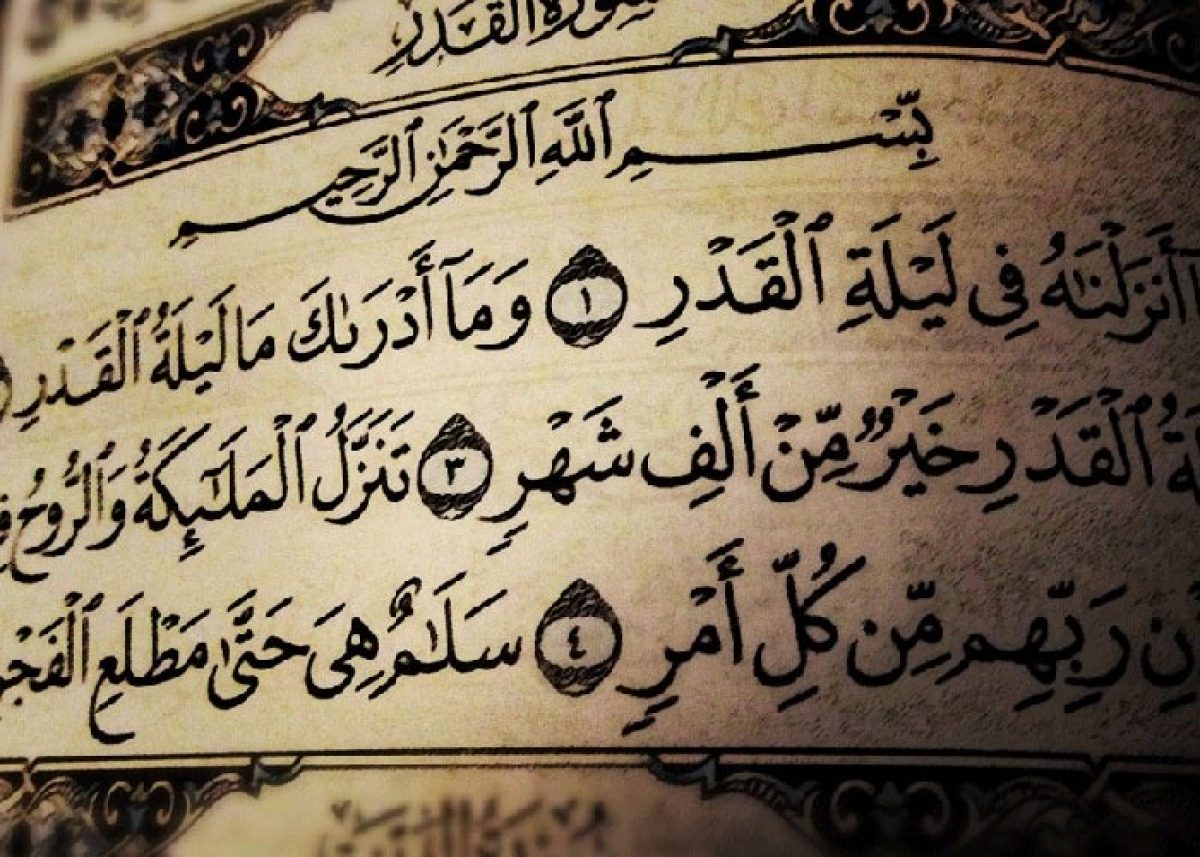 سُورَةُ القَدْرِ
بِسْمِ ٱللَّهِ ٱلرَّحْمَٰنِ ٱلرَّحِيمِ
أَنزَلْنَٰهُ فِى لَيْلَةِ ٱلْقَدْرِ ١ وَمَآ أَدْرَىٰكَ مَا لَيْلَةُ ٱلْقَدْرِ
ٱلْقَدْرِ خَيْرٌ مِّنْ أَلْفِ شَهْرٍ ٣ تَنَزَّلُ ٱلْمَلَٰٓئِكَةُ وَٱلرُّوحُ
رَبِّهِم مِّن كُلِّ أَمْرٍ ٤ سَلَٰمٌ هِىَ حَتَّىٰ مَطْلَعِ ٱلْفَجْرِ